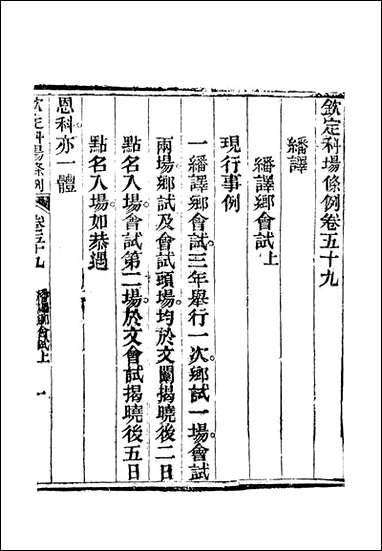 欽定科場條例卷五十九
繙譯
繙譯鄉會試上
現行事例
一繙譯鄉會試三年舉行一次鄉試一場會試
兩場鄉試及會試頭場均於文闈揭曉後二日
點名入場會試第二場於文會試揭曉後五日
點名入場如恭遇
恩科亦一體
欽定科場條例 卷五十九 繙譯鄉會試上 一